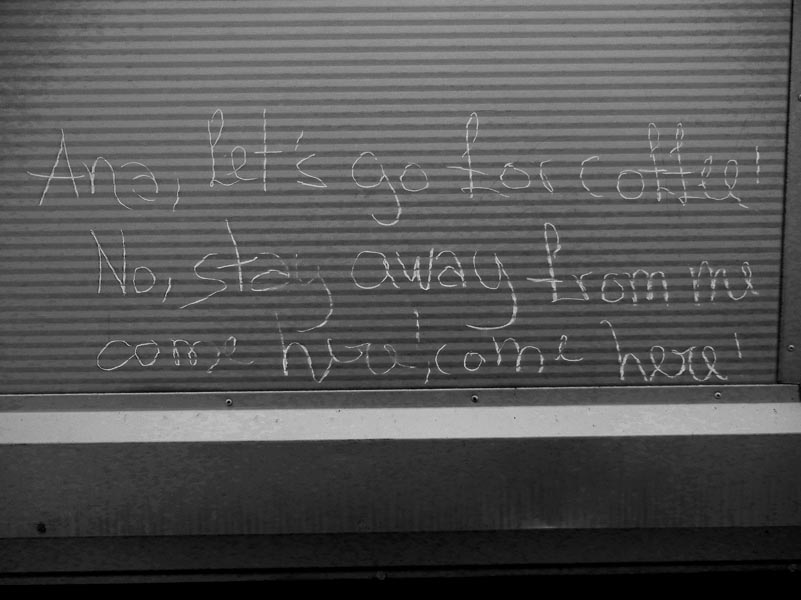 Ana, let's go for coffee!
No, stay away from me
come here!, come here!